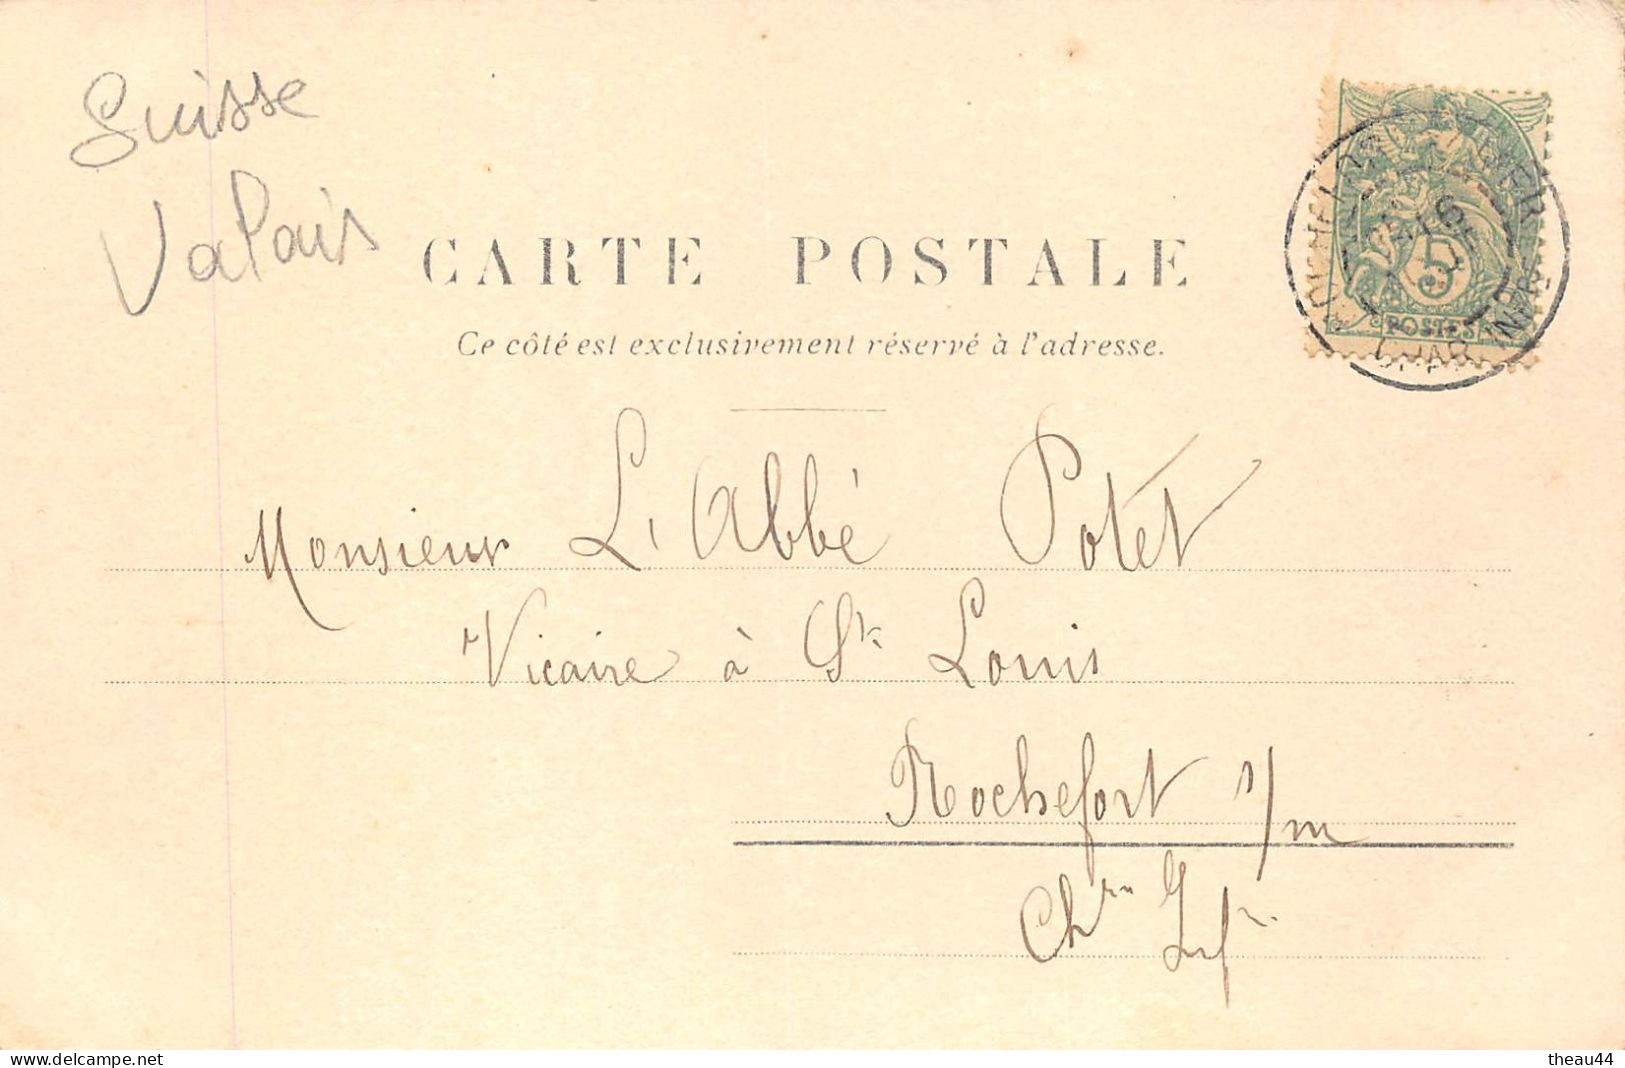 Suisse
Valais
CARTE POSTALE
Ce côté est exclusivement réservé à l'adresse.
5
POSTES
Monsieur L'Abbé Potet
Vicaire à St Louis
Rochefort s/m
Chre Infre
www.delcampe.net
theau44